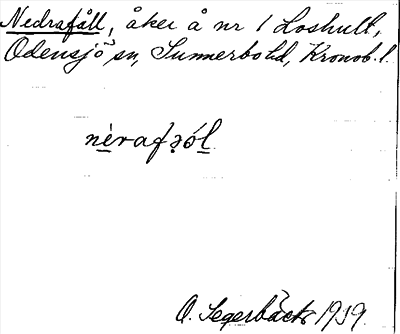 Nedrafåll, åker å nr 1 Loshult,
Odensjö sn, Sunnerbo hd, Kronob. l.
nèrafʒól
O. Segerbäck 1939.